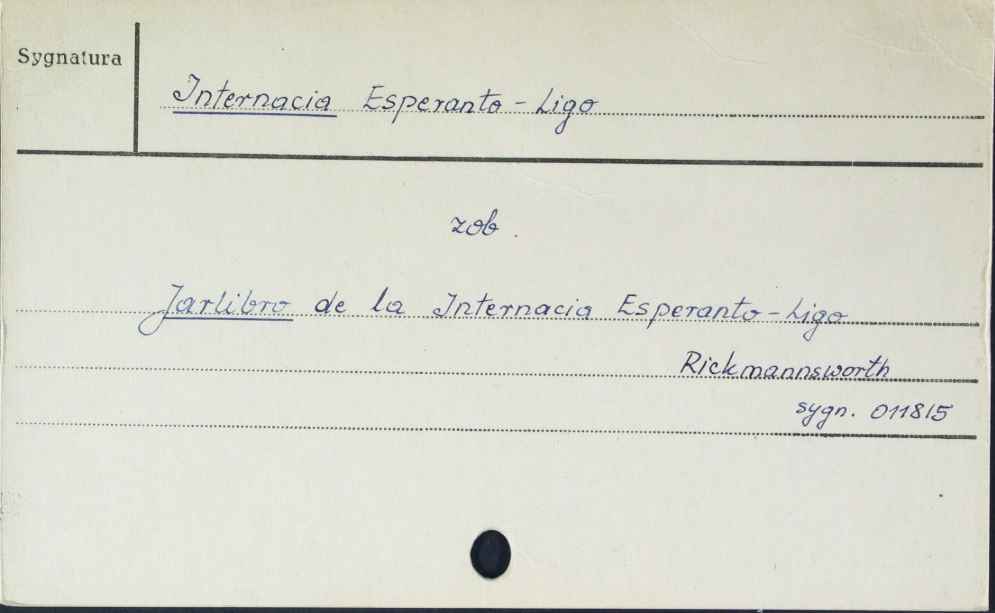 Sygnatura
Internacia Esperanto-Ligo
zob.
Jarlibro de la Internacia Esperanto-Ligo
Rickmannsworth
sygn. 011815